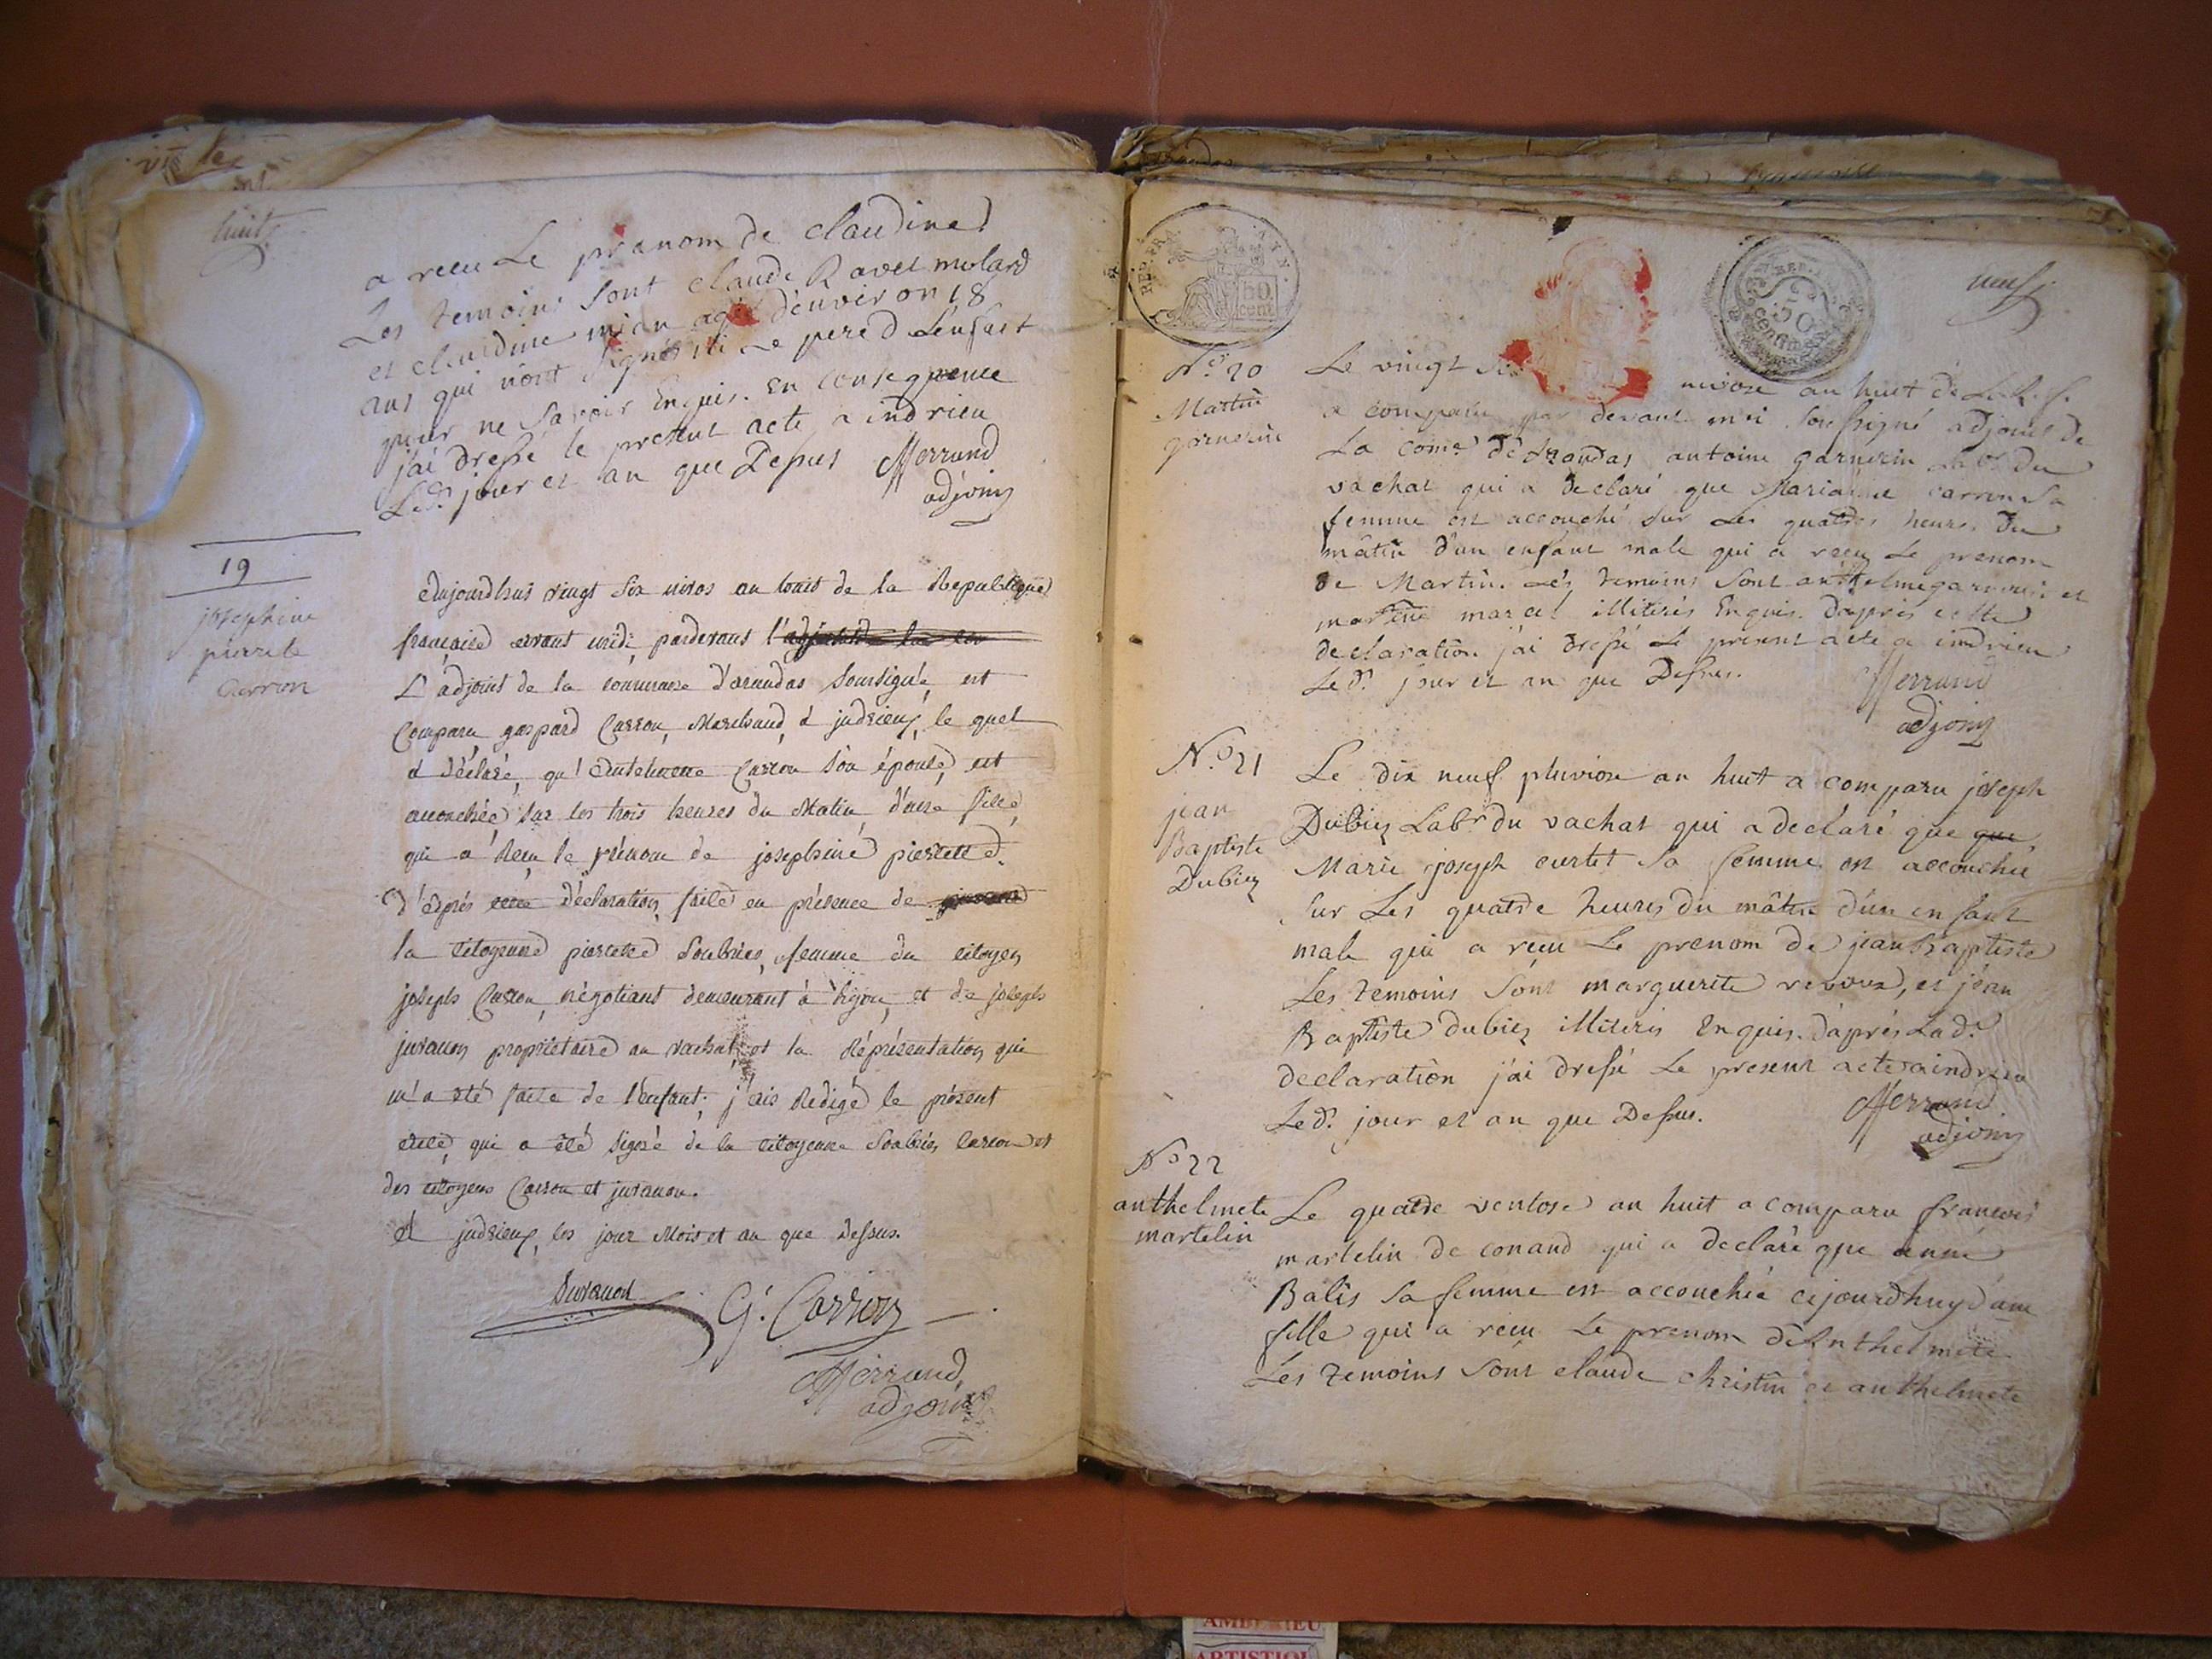 huit
a reçu Le prenom de claudine
Les temoins Sont claude Ravet molard
et claudine mian agé d'enviroon 18
ans qui n'ont signés ni Le pere d L'enfant
pour ne Savoir Enquis. En consequence
j'ai dressé le present acte a indrieu
Led. jour et an que Dessus Merrand
adjoint
19
josephine
pierrete
Carron
Aujourdhui vingt six nivos an huit de la Republique
française avant midi, pardevant l'adjoint de la com
L'adjoint de la commune d'arandas soussigné, est
Comparu gaspard Carron, Marchand, à jndrieux, le quel
a déclaré, qu' Anthelmette Carron son épouse, est
accouchée, sur les trois heures du Matin, d'une fille,
qui a Reçu le prénom de josephine pierrette.
D'après cette déclaration, faite en présence de
la citoyenne pierrette Soubries, femme du citoyen
joseph Carron, négotiant demeurant à dijon, et de joseph
juvanon propriétaire au vachat, et la Réprésentation qui
m'a été faite de l'enfant; j'ais Rédigé le présent
acte, qui a été signé de la citoyenne Soubries Carron et
des citoyens Carron et juvanon.
A jndrieux, les jour Mois et an que dessus.
Juvanon G. Carron
Merrand,
adjoint
REP. FRA
50.
cent
50
centimes
neuf
N.º 20
Martin
garnerin
Le vingt nivose an huit de L. R. f.
a comparu par devant moi soussigné adjoint de
La com.e d'Arandas antoine garnerin Lab.r du
vachat qui a declaré que Marianne carron Sa
femme est accouché sur Les quatre heures du
mâtin d'un enfant male qui a reçu Le prenom
de Martin. Les temoins Sont anthelme garnerin et
martin marcel illiterés Enquis. d'après cette
declaration j'ai dressé Le present acte a indrieu
Led. jour et an que Dessus. Merrand
adjoint
N.º 21
jean
Baptiste
Dubiez
Le dix neuf pluviose an huit a comparu joseph
Dubiez Lab.r du vachat qui a declaré que que
Marie joseph curtet Sa femme est accouchée
Sur Les quatre heures du mâtin d'un enfant
male qui a reçu Le prenom de jean Baptiste
Les temoins Sont marguerite revoux, et jean
Baptiste dubiez illiteris Enquis. d'après Lad.
declaration j'ai dressé Le present acte a indrieu
Led. jour et an que Dessus. Merrand
adjoint
N.º 22
anthelmete
martelin
Le quatre ventose an huit a comparu françois
martelin de conand qui a declaré que anne
Balis sa femme est accouchée cejourdhuy d'une
fille qui a reçu Le prenom d'Anthelmete
Les temoins Sont claude christin et anthelmete
AMBERIEU